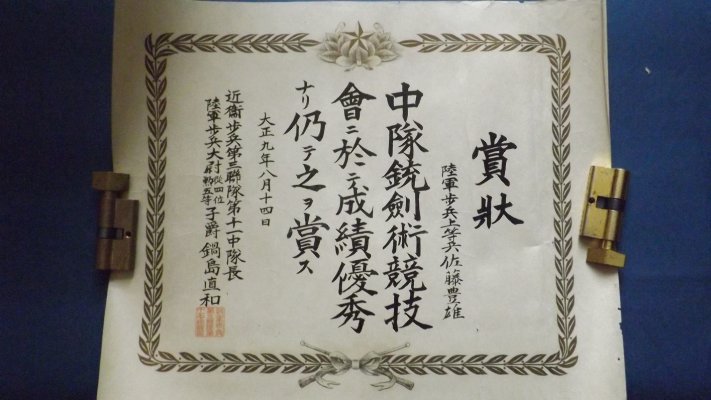 賞狀
陸軍歩兵上等兵佐藤豊雄
中隊銃劍術競技
會ニ於テ成績優秀
ナリ仍テ之ヲ賞ス
大正九年八月十四日
近衞歩兵第三聯隊第十一中隊長
陸軍歩兵大尉從四位勲五等子爵鍋島直和